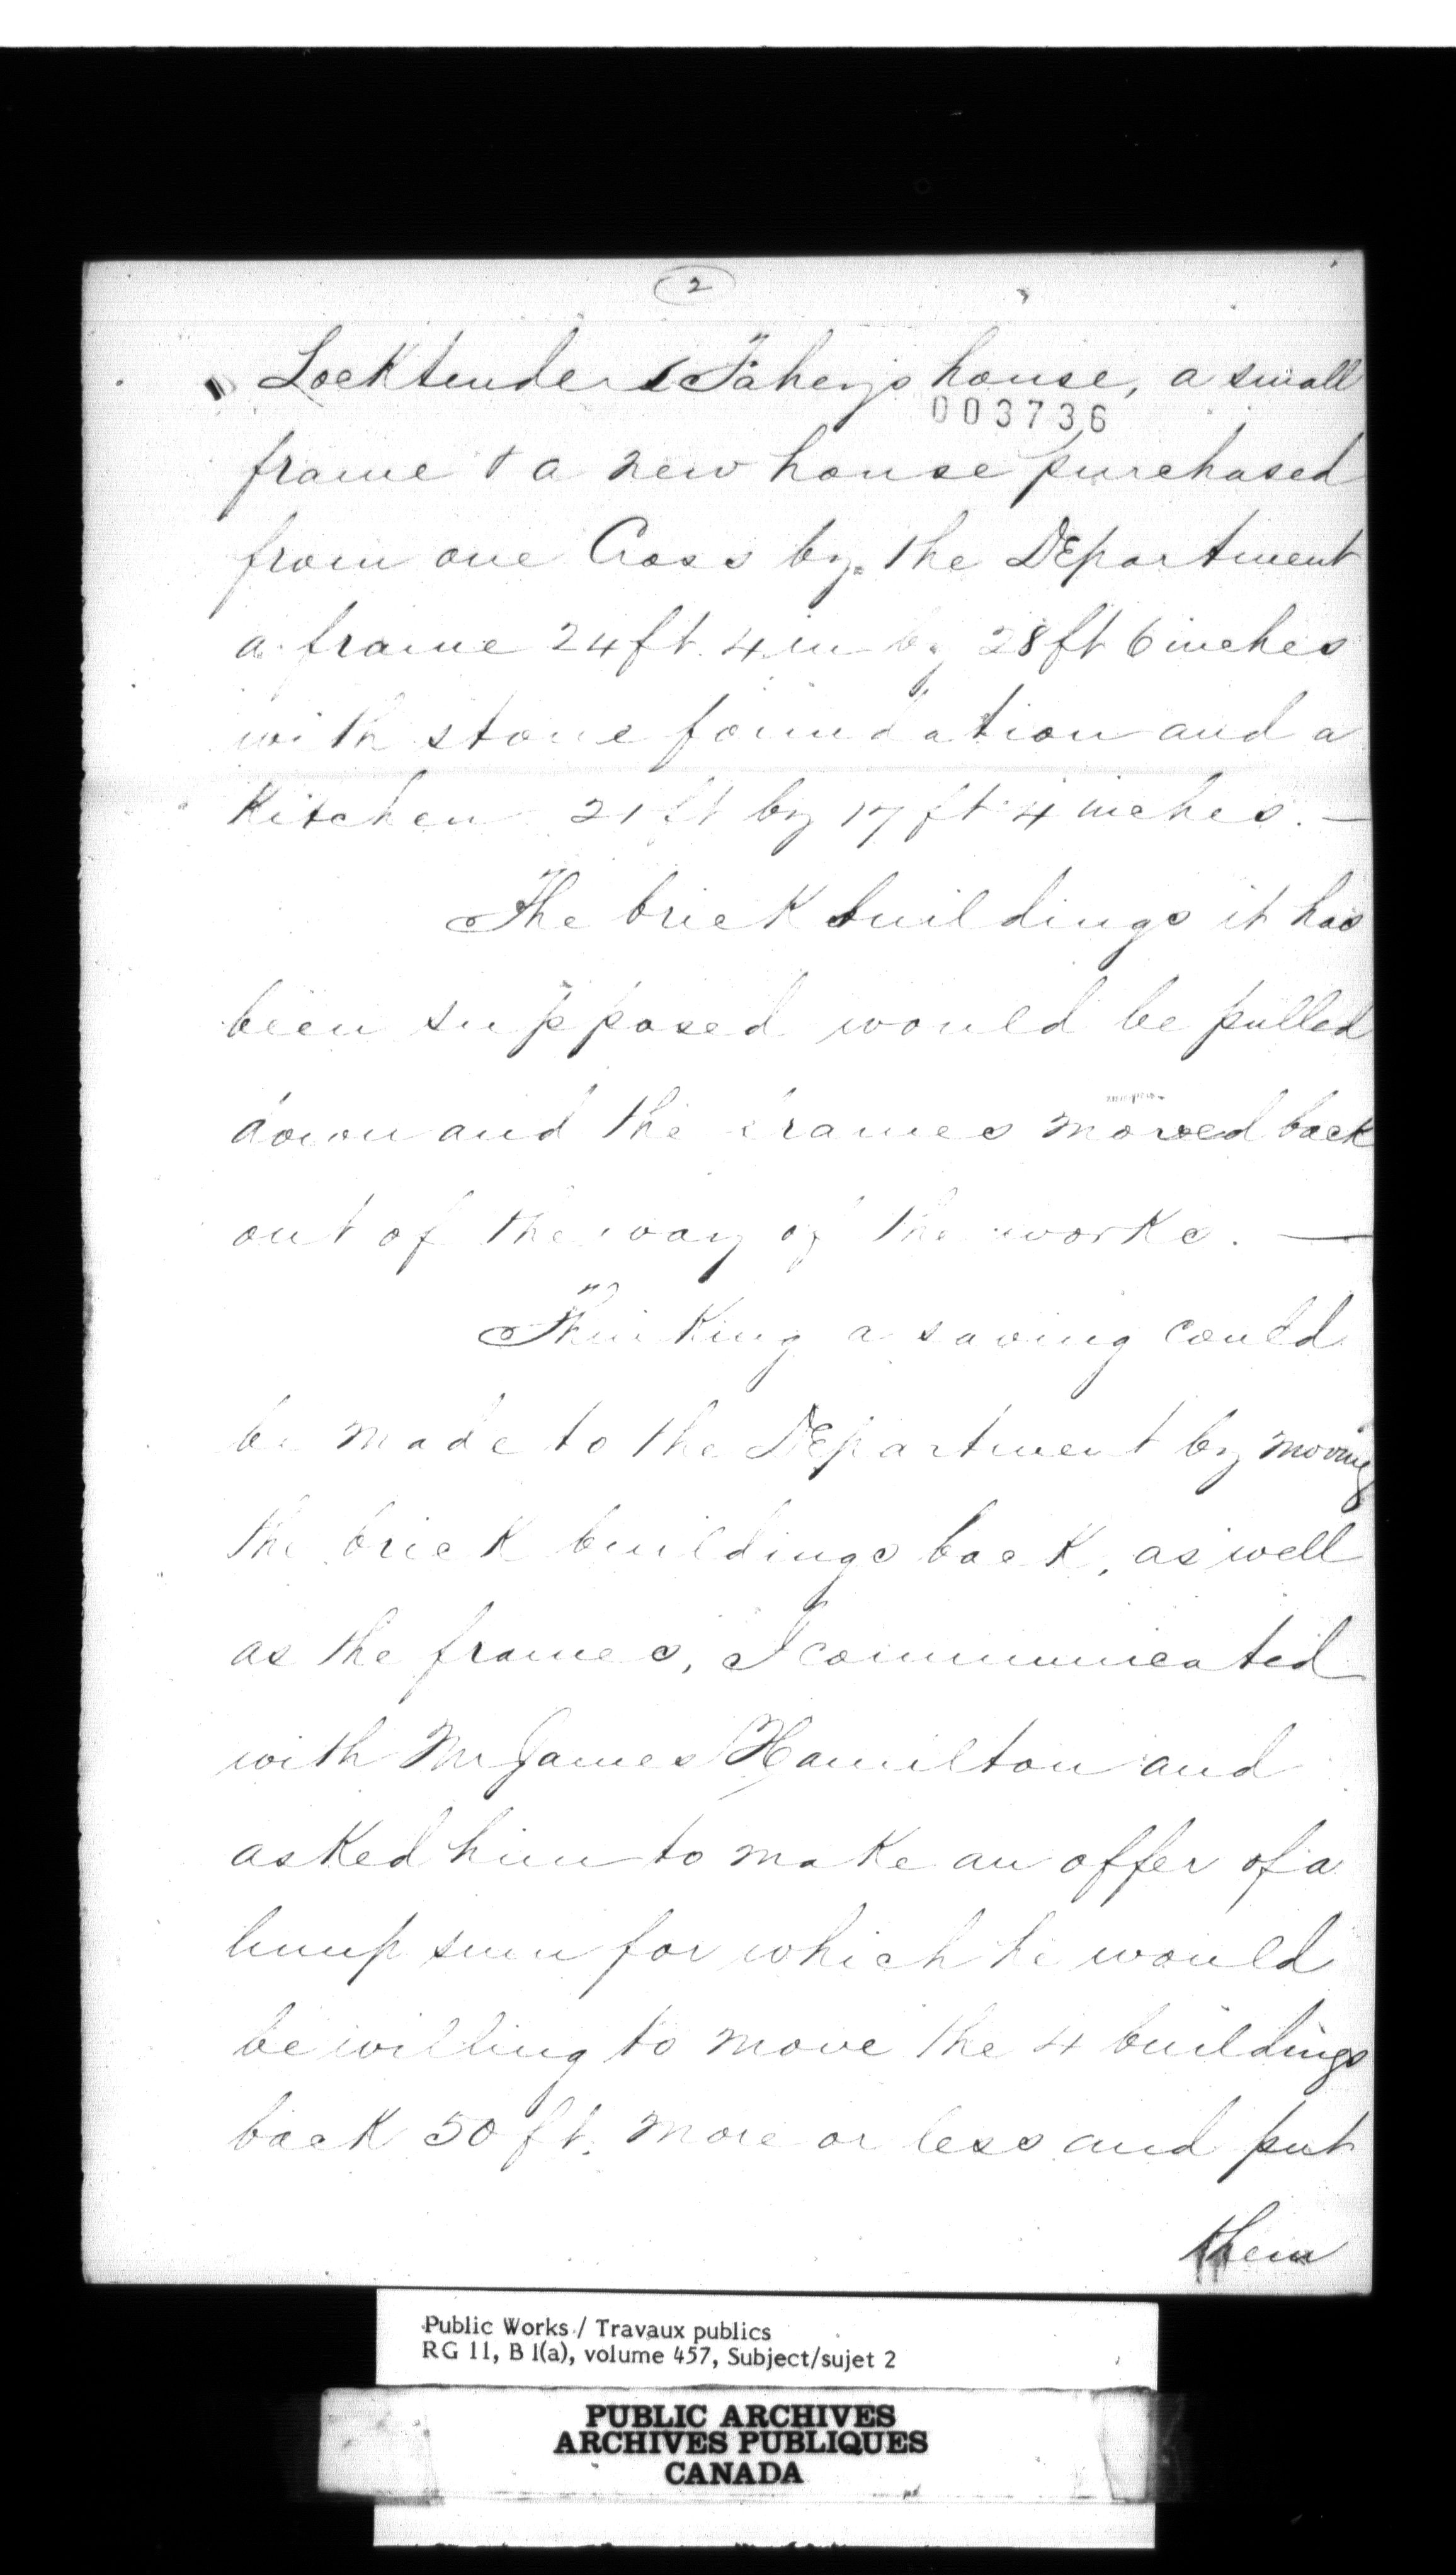 2
Locktenders Faheys house, a small
003736
frame & a new house purchased
from one Cross by the DEpartment
a frame 24 ft. 4 in by 28 ft 6 inches
with stone foundation and a
Kitchen 21 ft by 17 ft 4 inches. —
The brick buildings it has
been supposed would be pulled
down and the frames moved back
out of the way of the works. —
Thinking a saving could
be made to the DEpartment by moving
the brick buildings back, as well
as the frames, I communicated
with Mr James Hamilton and
asked him to make an offer of a
lump sum for which he would
be willing to move the 4 buildings
back 50 ft. more or less and put
them
Public Works / Travaux publics
RG 11, B 1(a), volume 457, Subject/sujet 2
PUBLIC ARCHIVES
ARCHIVES PUBLIQUES
CANADA